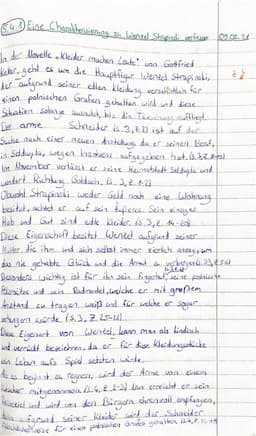 S.4 1) Eine Charakterisierung zu Wenzel Strapinski verfassen 09.02.21
In der Novelle „Kleider machen Leute" von Gottfried
Keller, geht es um die Hauptfigur Wenzel Strapinski,
der aufgrund seiner edlen Kleidung versehentlich für
einen polnischen Grafen gehalten wird und diese
Situation solange ausnutzt, bis die Täuschung auffliegt.
Der arme Schneider (S.3, Z.2) ist auf der
Suche nach einer neuen Arbeit, da er seinen Beruf,
in Seldwyla, wegen Insolvenz aufgegeben hat. (S.3, Z.
Im November verlässt er seine Heimatstadt Seldwyla und
wandert Richtung Goldach. (S. 3, Z. 1-2)
Obwohl Strapinski weder Geld noch eine Wohnung
besitzt, achtet er auf sein äußeres. Sein einziges
Hab und Gut sind edle Kleider. (S.3, Z. 14-
Diese Eigenschaft besitzt Wenzel aufgrund seiner
Mutter, die ihn und sich selbst immer zierlich anzog, um
das nie gehabte Glück und die Armut zu verbergen.
Besonders wichtig ist für ihn sein Fingerhut, seine polnische
Pelzmütze und sein Radmantel, welche ein mit großem
Anstand zu tragen weiß und für welche er sogar
verhungern würde. (S.3, Z
Diese Eigenart von Wenzel, kann man als kindisch
und verrückt bezeichnen, da er für die Kleidungsstücke
sein Leben aufs Spiel setzten würde.
Da es beginnt zu regnen, wird der Arme von einem
Kutscher mitgenommen. (S.4, Z.1-3) Nun erreicht er sein
und wird von den Bürgern ehrenvoll empfangen,
denn aufgrund seiner Kleider wird der Schneider
für einen polnischen Grafen gehalten. (S.4, Z.